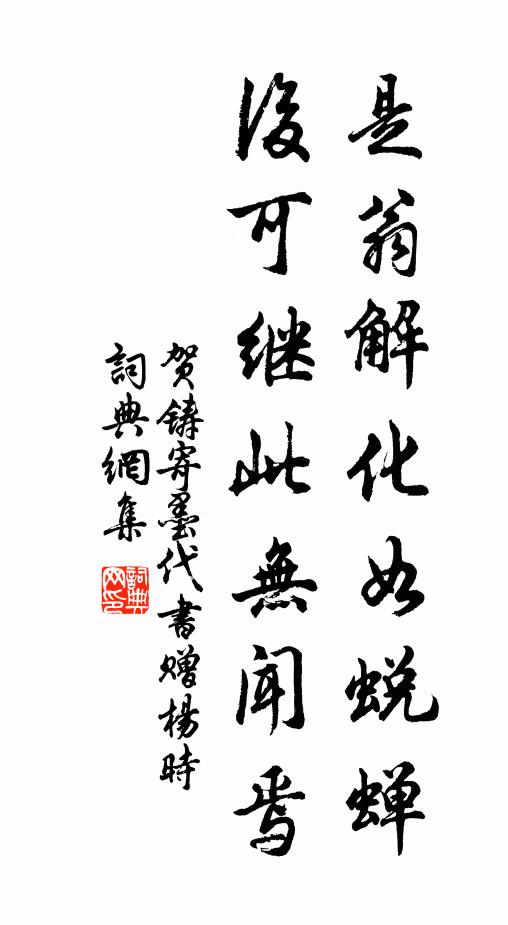 是翁解化如蜕蝉
後可继此無聞焉
贺铸寄墨代書赠楊時
詞典網集
詞典网印